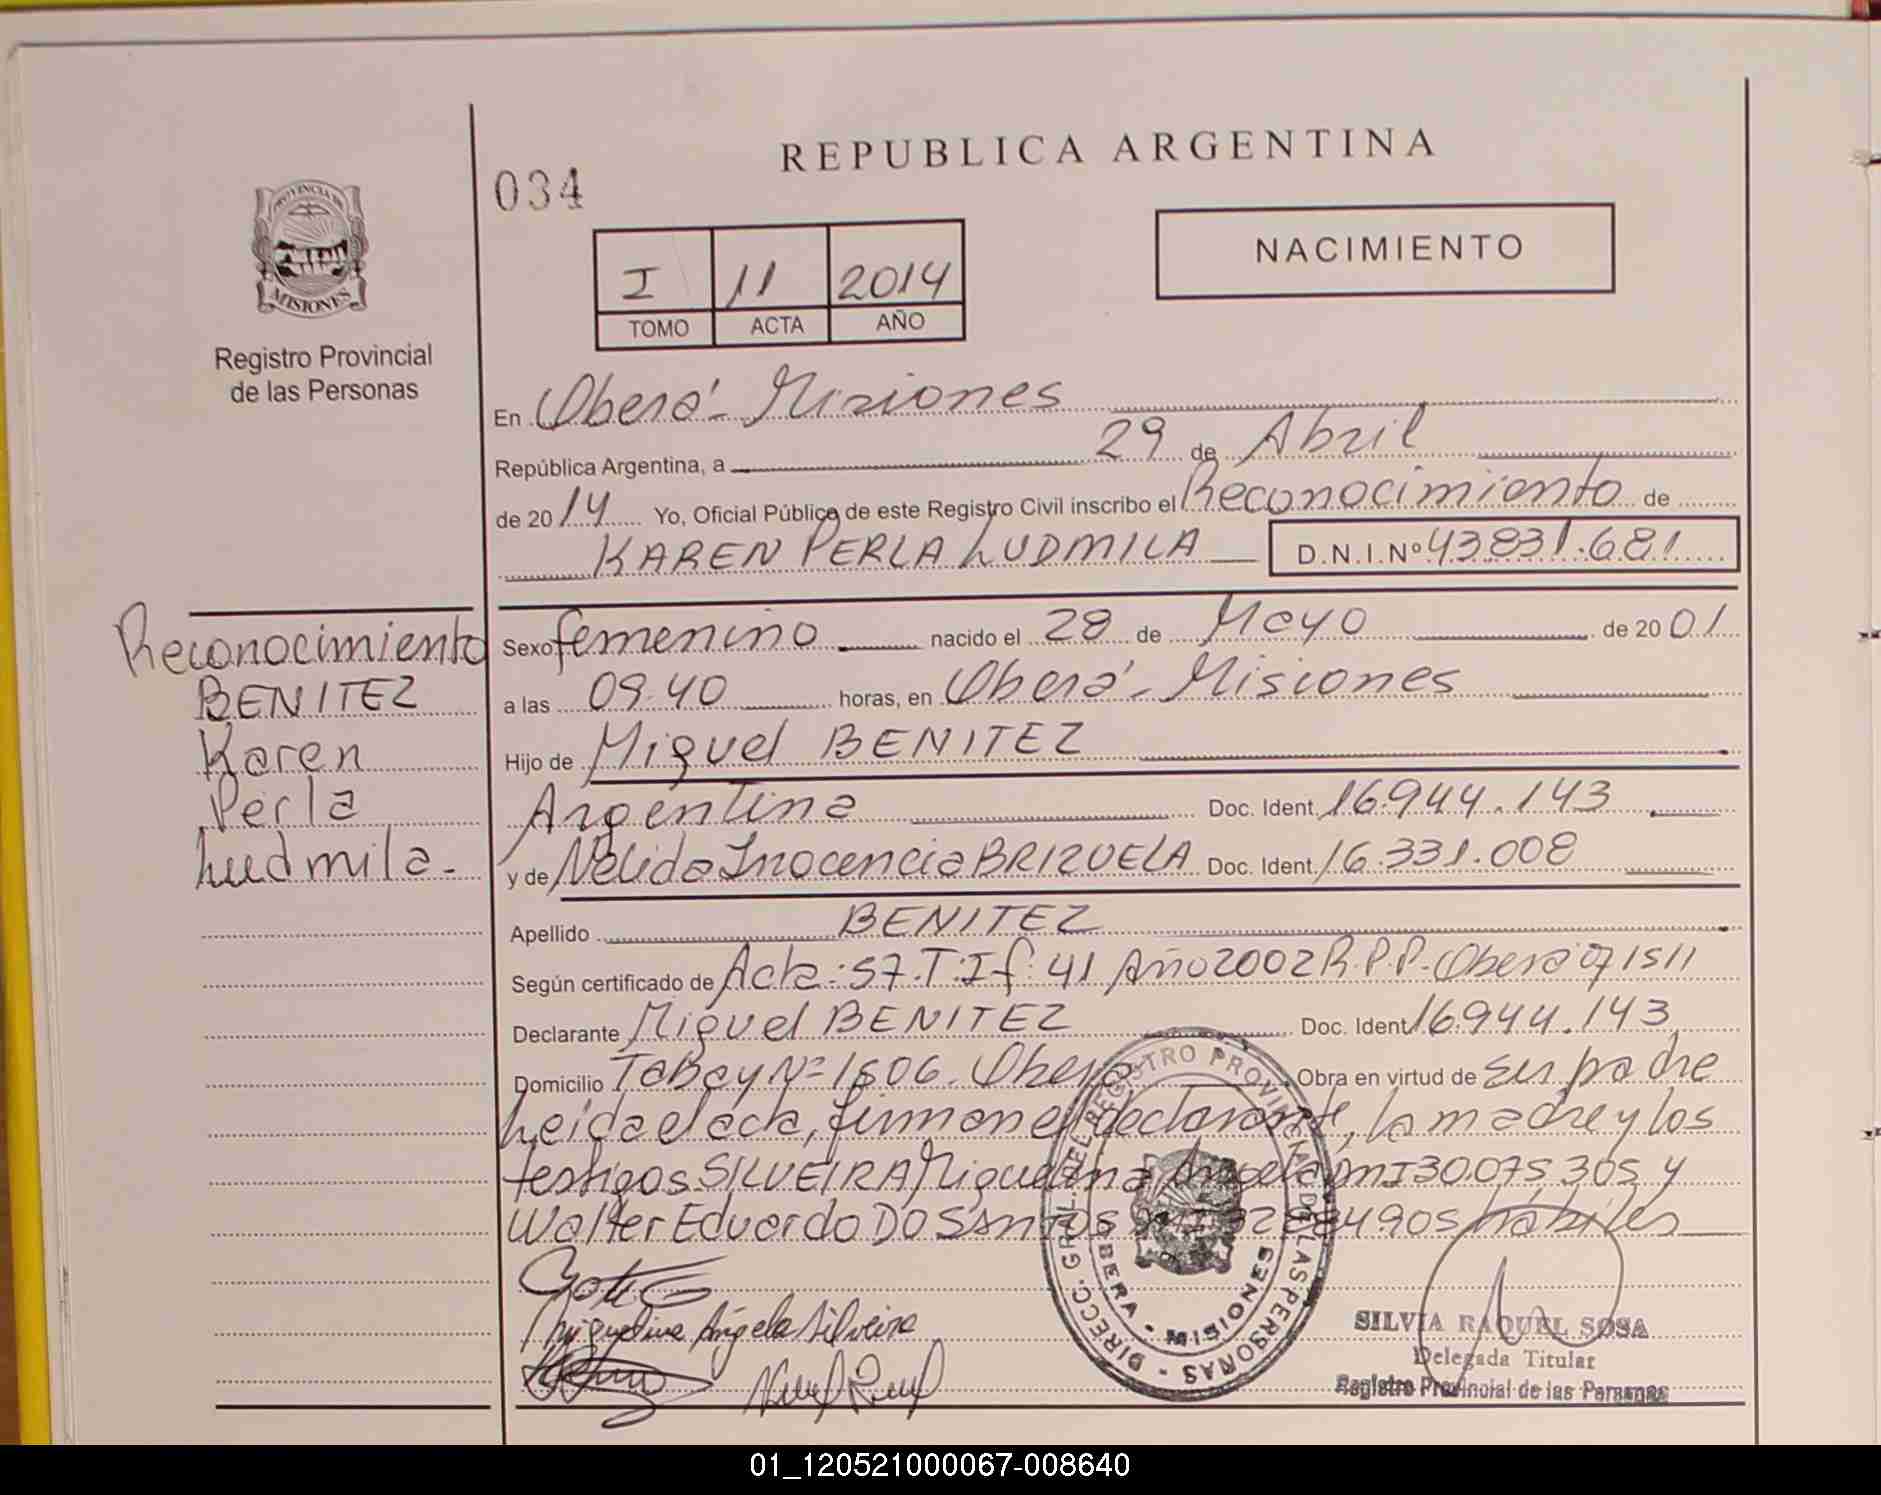 REPUBLICA ARGENTINA
034
PROVINCIA DE
MISIONES
Registro Provincial
de las Personas
I 11 2014
TOMO ACTA AÑO
NACIMIENTO
En Oberá - Misiones
República Argentina, a 29 de Abril
de 2014 Yo, Oficial Público de este Registro Civil inscribo el Reconocimiento de
KAREN PERLA LUDMILA D.N.I.Nº 43831.681
Reconocimiento
BENITEZ
Karen
Perla
Ludmila.-
Sexo femenino nacido el 28 de Mayo de 2001
a las 09.40 horas, en Oberá - Misiones
Hijo de Miguel BENITEZ
Argentina Doc. Ident. 16.944.143
y de Nélida Inocencia BRIZUELA Doc. Ident. 16.331.008
Apellido BENITEZ
Según certificado de Acta: 57. T: I f: 41 Año 2002 R.P.P. Oberá 071511
Declarante Miguel BENITEZ Doc. Ident 16.944.143
Domicilio TaBay Nº 1606. Oberá Obra en virtud de ser padre
Leída el acta, firman el declarante, la madre y los
testigos SILVEIRA Miguelina Angela DNI 30.075.305 y
Walter Eduardo DO SANTOS hábiles
Miguelina Angela Silveira
DIRECC. GRAL. DEL REGISTRO PROVINCIAL DE LAS PERSONAS -
OBERA - MISIONES
SILVIA RAQUEL SOSA
Delegada Titular
Registro Provincial de las Personas
01_120521000067-008640